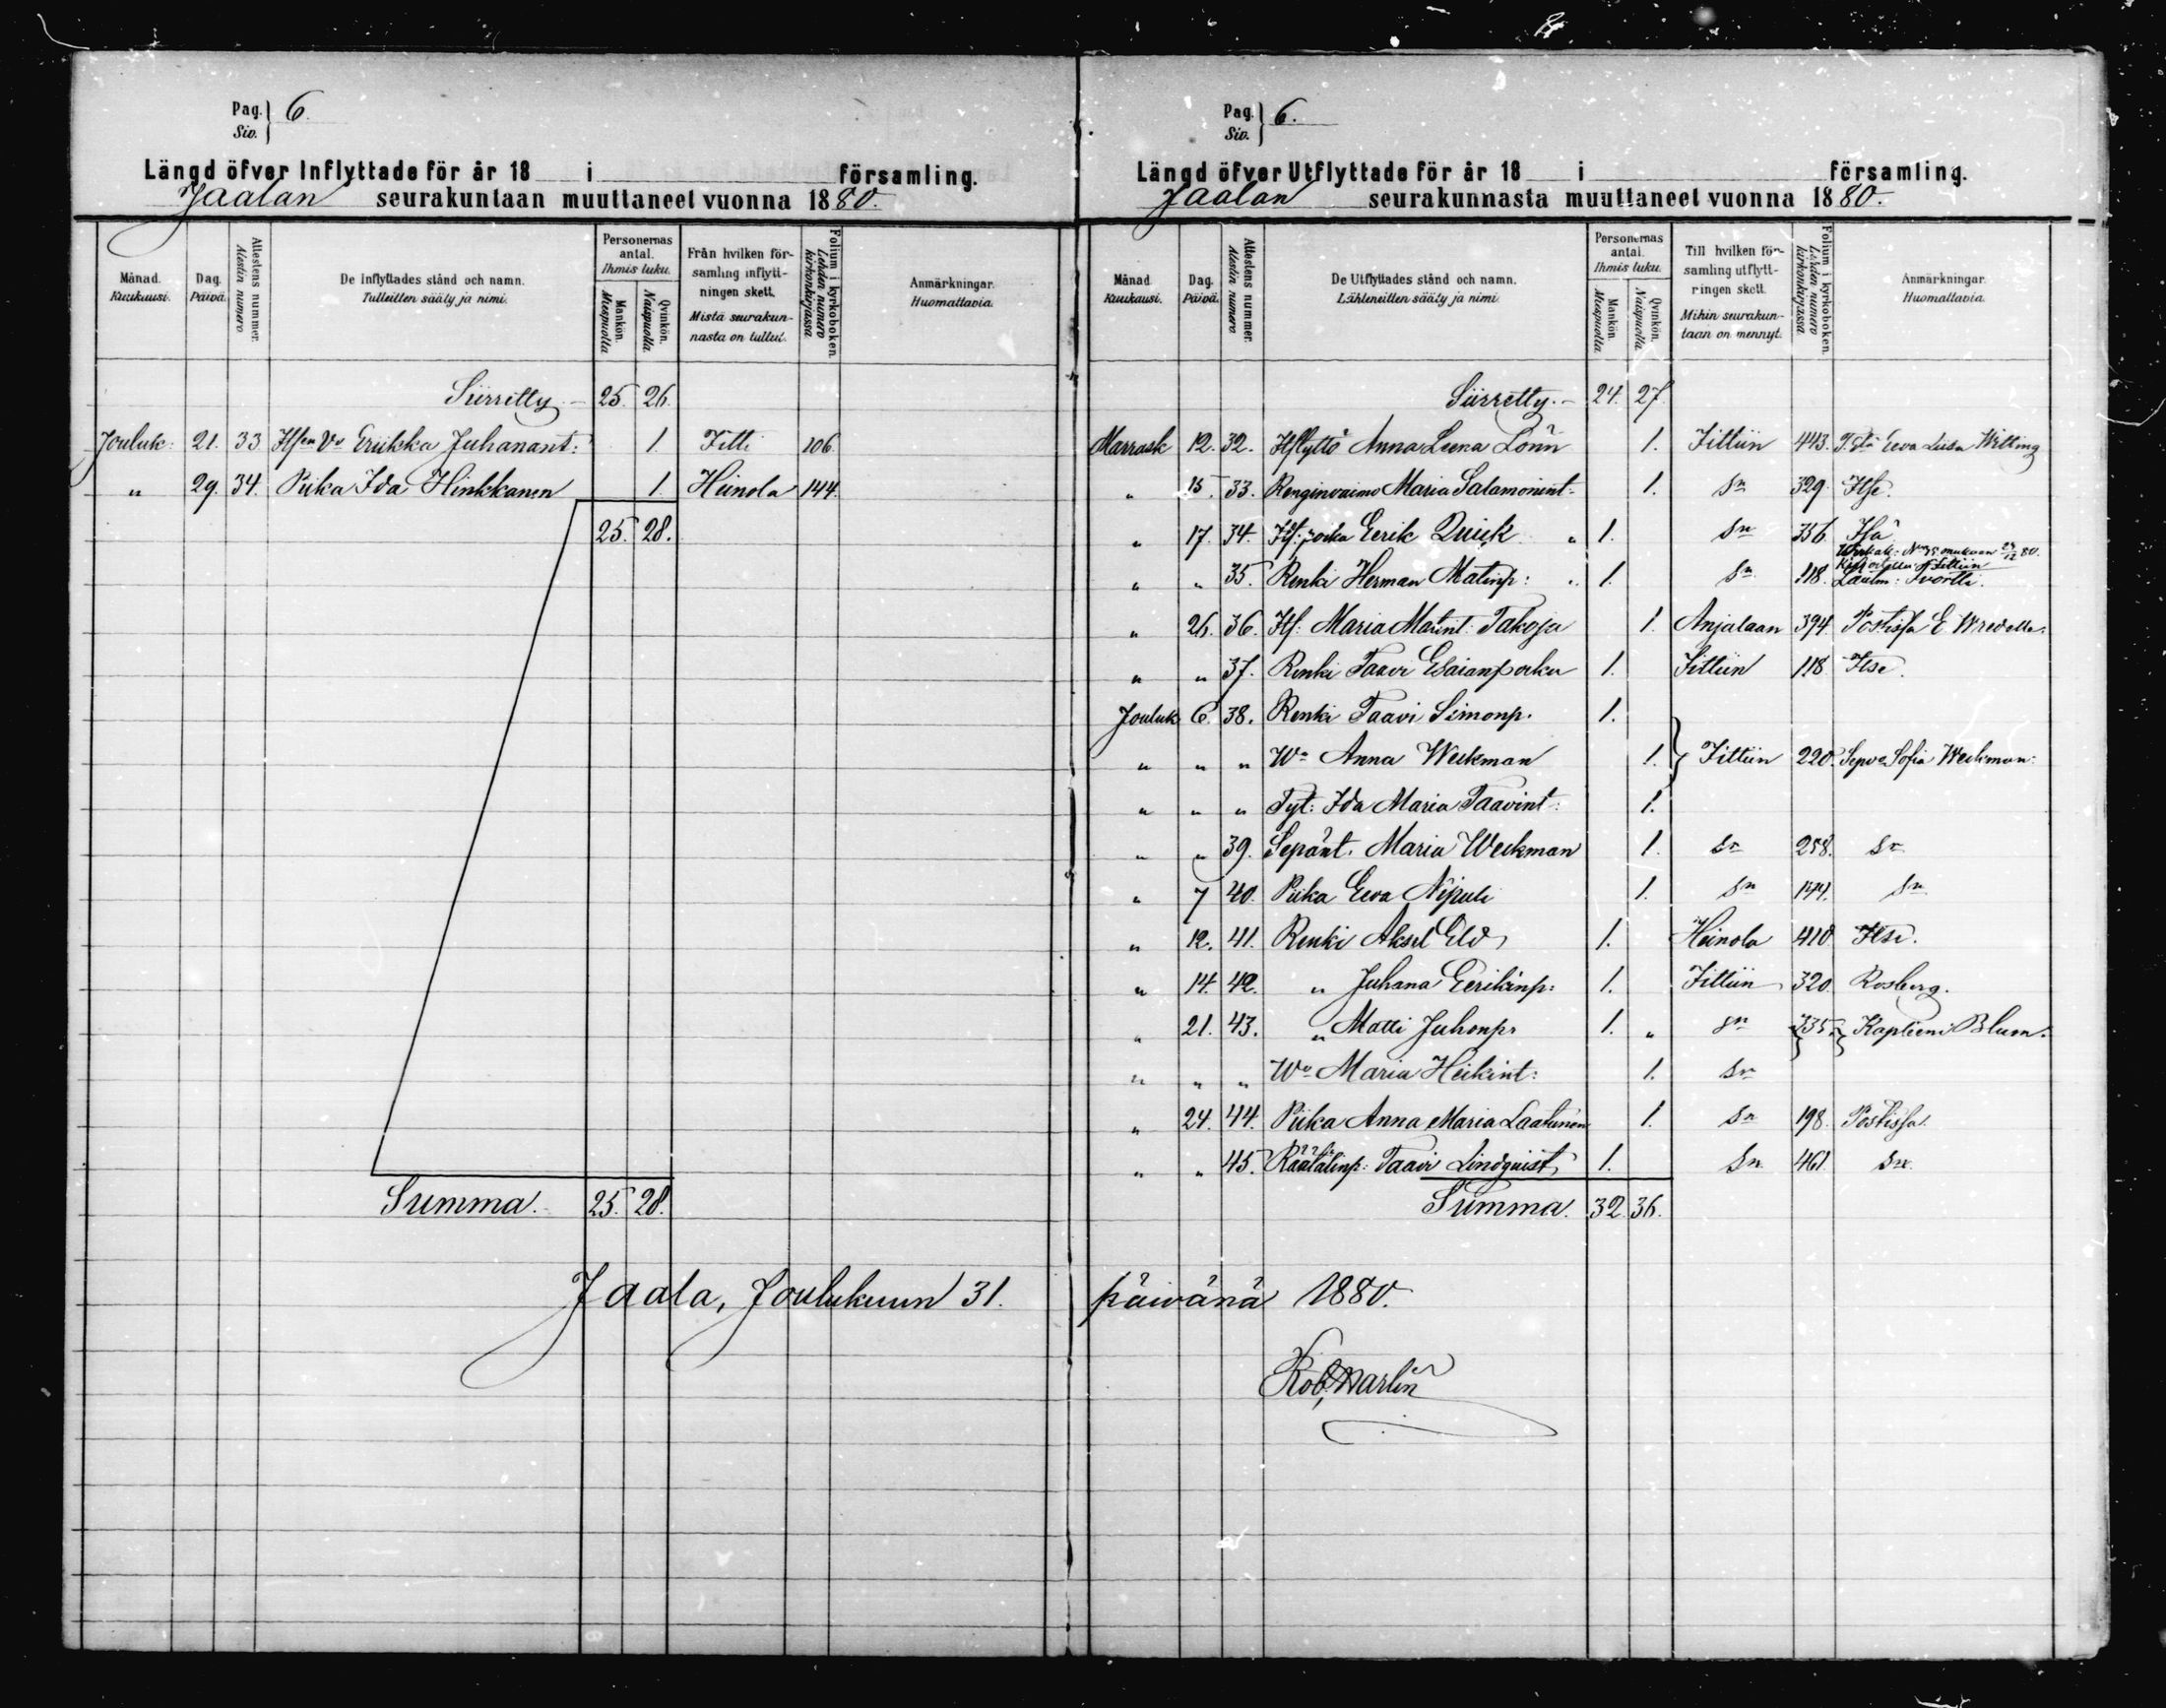 Pag. Siv. } 6.
Längd öfver Inflyttade för år 18 i församling.
Jaalan seurakuntaan muuttaneet vuonna 1880.
Månad. Kuukausi.
Dag. Päivä.
Attestens nummer. Atestin numero
De Inflyttades stånd och namn. Tulleitten sääty ja nimi.
Personernas antal. Ihmis luku.
Mankön. Miespuolia
Qvinkön. Naispuolia
Från hvilken församling inflyttningen skett. Mistä seurakunnasta on tullut.
Folium i kyrkoboken. Lehden numero kirkonkirjassa
Anmärkningar. Huomattavia.
Siirretty 25. 26.
Jouluk: 21. 33 Erikka Juhanant: 1. Iitti 106.
" 29. 34. Piika Ida Hinkkanen 1. Heinola 144.
25. 28.
Summa. 25. 28.
Jaala, Joulukuun 31.
Pag. Siv. } 6.
Längd öfver Utflyttade för år 18 i församling.
Jaalan seurakunnasta muuttaneet vuonna 1880.
Månad Kuukausi.
Dag. Päivä.
Attestens nummer. Atestin numero
De Utflyttades stånd och namn. Lähteneitten sääty ja nimi.
Personernas antal. Ihmis luku.
Mankön. Miespuolia
Qvinkön. Naispuolia.
Till hvilken församling utflyttringen skett. Mihin seurakuntaan on mennyt.
Folium i kyrkoboken. Lehden numero kirkonkirjassa
Anmärkningar. Huomattavia.
Siirretty. 24. 27
Marrask 12. 32. Anna Leena Lönn 1. Iittiin 443. Eeva Liisa Witting
" 15. 33. Renginvaimo Maria Salamonint: 1. Sn 329. Itse.
" 17. 34. Eerik Quick " 1. Sn 356.
" " 35. Renki Herman Matinp: 1. Sn 118.
" 26. 36. Its: Maria Matint: Takoja 1. Anjalaan 394. Postissa E Wredelle.
" " 37. Renki Taavi Esaianpoika 1. Iittiin 118 Itse.
Jouluk 6. 38. Renki Taavi Simonp. 1.
" " " Wo Anna Weckman 1. } Iittiin 220. Sofia Weckman.
" " " Tyt: Ida Maria Taavint: 1.
" " 39. Sepänt. Maria Weckman 1. Sn 258. Sn
" 7 40. Piika Eeva Nipuli 1. Sn 144. Sn
" 12. 41. Renki Aksel Eld 1. Heinola 410 Itse.
" 14. 42. " Juhana Eerikinp: 1. Iittiin 320. Rosberg.
" 21. 43. " Matti Juhonp: 1. " Sn 335. Kapteeni Blum.
" " " Wo Maria Heikint: 1. Sn
" 24. 44. Piika Anna Maria Laakunen 1. Sn 198. Postissa.
" " 45. Räätälinp: Taavi Lindquist 1. Sn 461. Sn
Summa. 32. 36.
päivänä 1880.